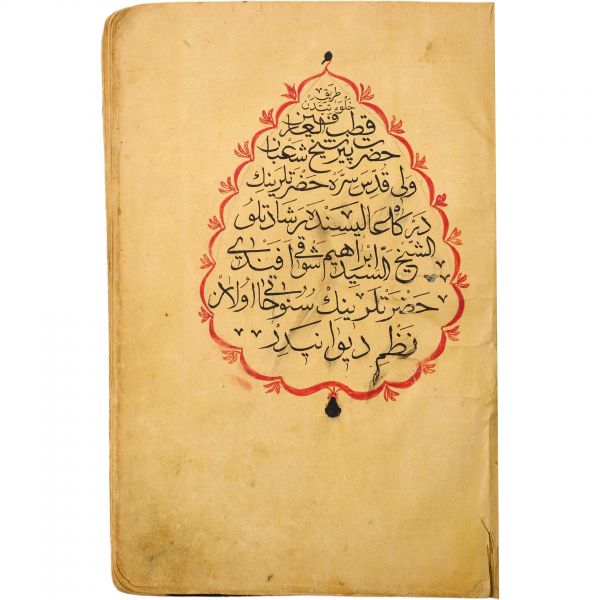 طريق
خلوتيدن
قطب العارفين
حضرت پير شيخ شعبان
ولى قدس سره حضرتلرينك
دركاه عاليسنده رشادتلو
الشيخ السيد ابراهيم شوقى افندى
حضرتلرينك سنوحاتى اولان
نظم ديوانيدر